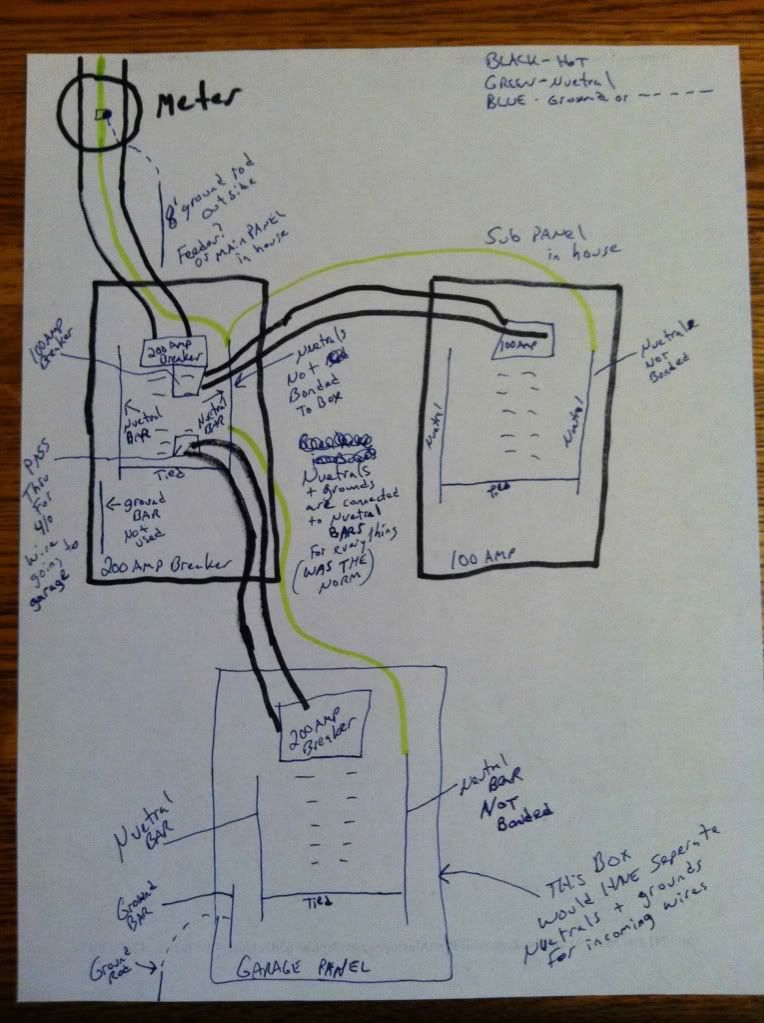 BLACK - Hot
GREEN - Nuetral
BLUE - Ground or - - - - - -
Meter
8' ground rod
outside
Feeder?
OS MAIN PANEL
in house
Sub PANEL
in house
100 AMP
Breaker
200 AMP
Breaker
Nuetral
BAR
Nuetral
BAR
Tied
← ground
BAR
Not
used
200 AMP Breaker
PASS
Thru
For
4/0
wire
going to
garage
Nuetrals
Not
Bonded
To Box
Nuetrals
+ grounds
are connected
to Nuetral
BARS
For everything
(WAS THE
NORM)
100 AMP
Nuetral
Nuetral
Tied
100 AMP
Nuetrals
Not
Bonded
200 AMP
Breaker
Nuetral
BAR
Ground
BAR
Ground
Rod
Tied
GARAGE PANEL
Neutral
BAR
NOT
Bonded
THis Box
would HAVE Seperate
Nuetrals + grounds
For incoming wires